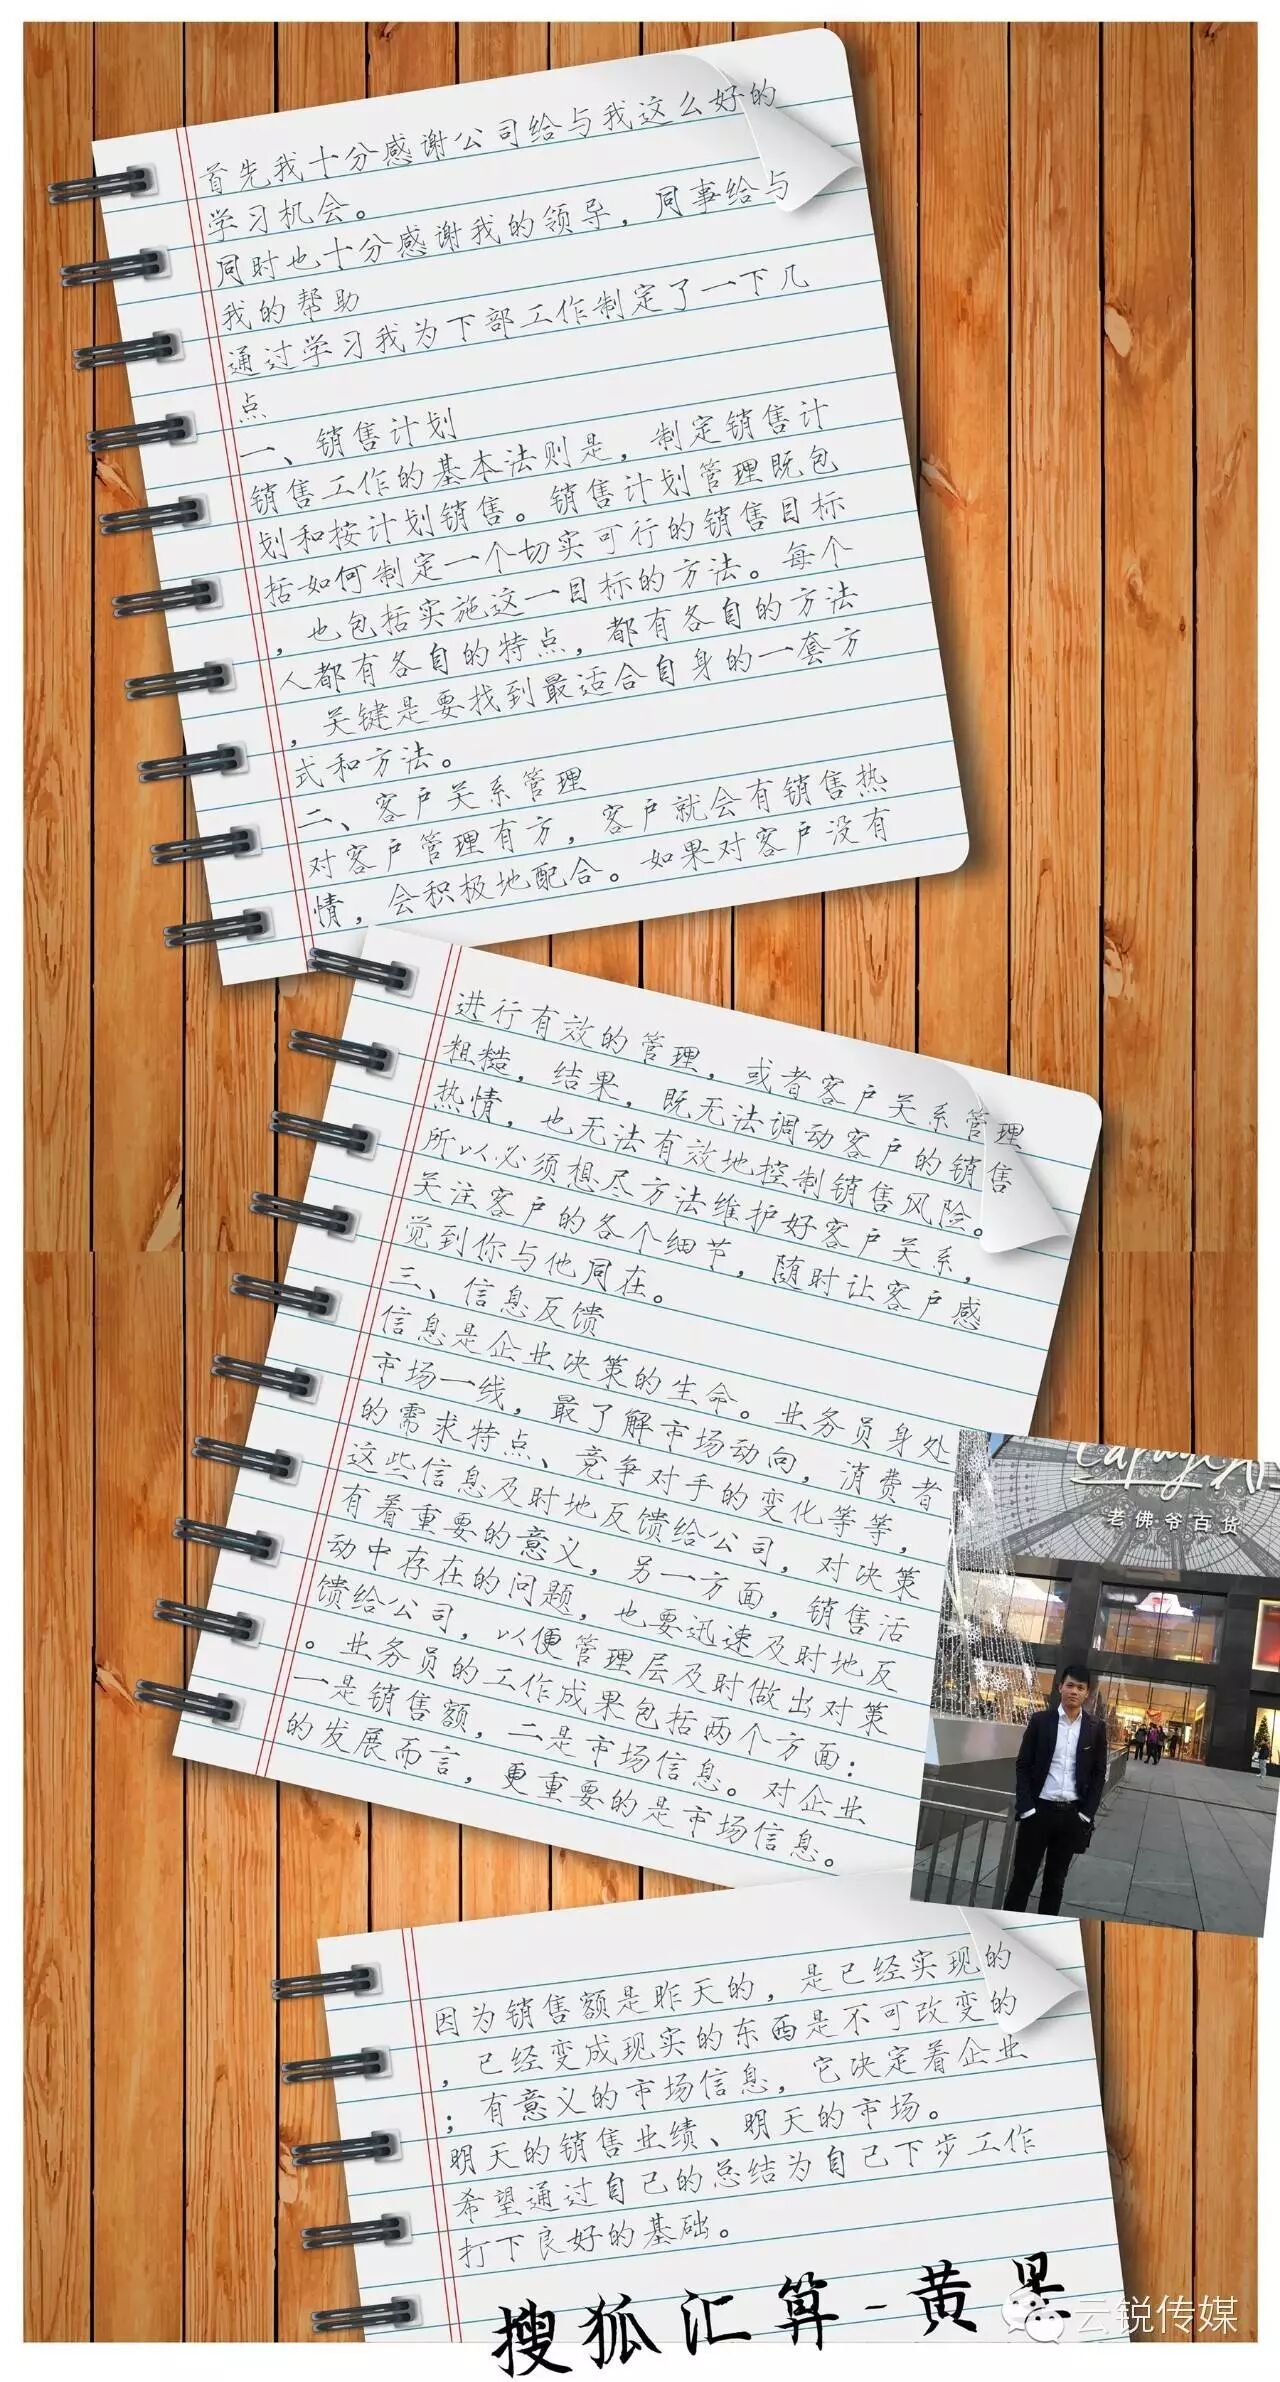 首先我十分感谢公司给与我这么好的
学习机会。
同时也十分感谢我的领导，同事给与
我的帮助
通过学习我为下部工作制定了一下几
点
一、销售计划
销售工作的基本法则是，制定销售计
划和按计划销售。销售计划管理既包
括如何制定一个切实可行的销售目标
，也包括实施这一目标的方法。每个
人都有各自的特点，都有各自的方法
，关键是要找到最适合自身的一套方
式和方法。
二、客户关系管理
对客户管理有方，客户就会有销售热
情，会积极地配合。如果对客户没有
进行有效的管理，或者客户关系管理
粗糙，结果，既无法调动客户的销售
热情，也无法有效地控制销售风险。
所以必须想尽方法维护好客户关系，
关注客户的各个细节，随时让客户感
觉到你与他同在。
三、信息反馈
信息是企业决策的生命。业务员身处
市场一线，最了解市场动向，消费者
的需求特点、竞争对手的变化等等，
这些信息及时地反馈给公司，对决策
有着重要的意义，另一方面，销售活
动中存在的问题，也要迅速及时地反
馈给公司，以便管理层及时做出对策
。业务员的工作成果包括两个方面：
一是销售额，二是市场信息。对企业
的发展而言，更重要的是市场信息。
老佛爷百货
因为销售额是昨天的，是已经实现的
，已经变成现实的东西是不可改变的
；有意义的市场信息，它决定着企业
明天的销售业绩、明天的市场。
希望通过自己的总结为自己下步工作
打下良好的基础。
搜狐汇算-黄
云锐传媒